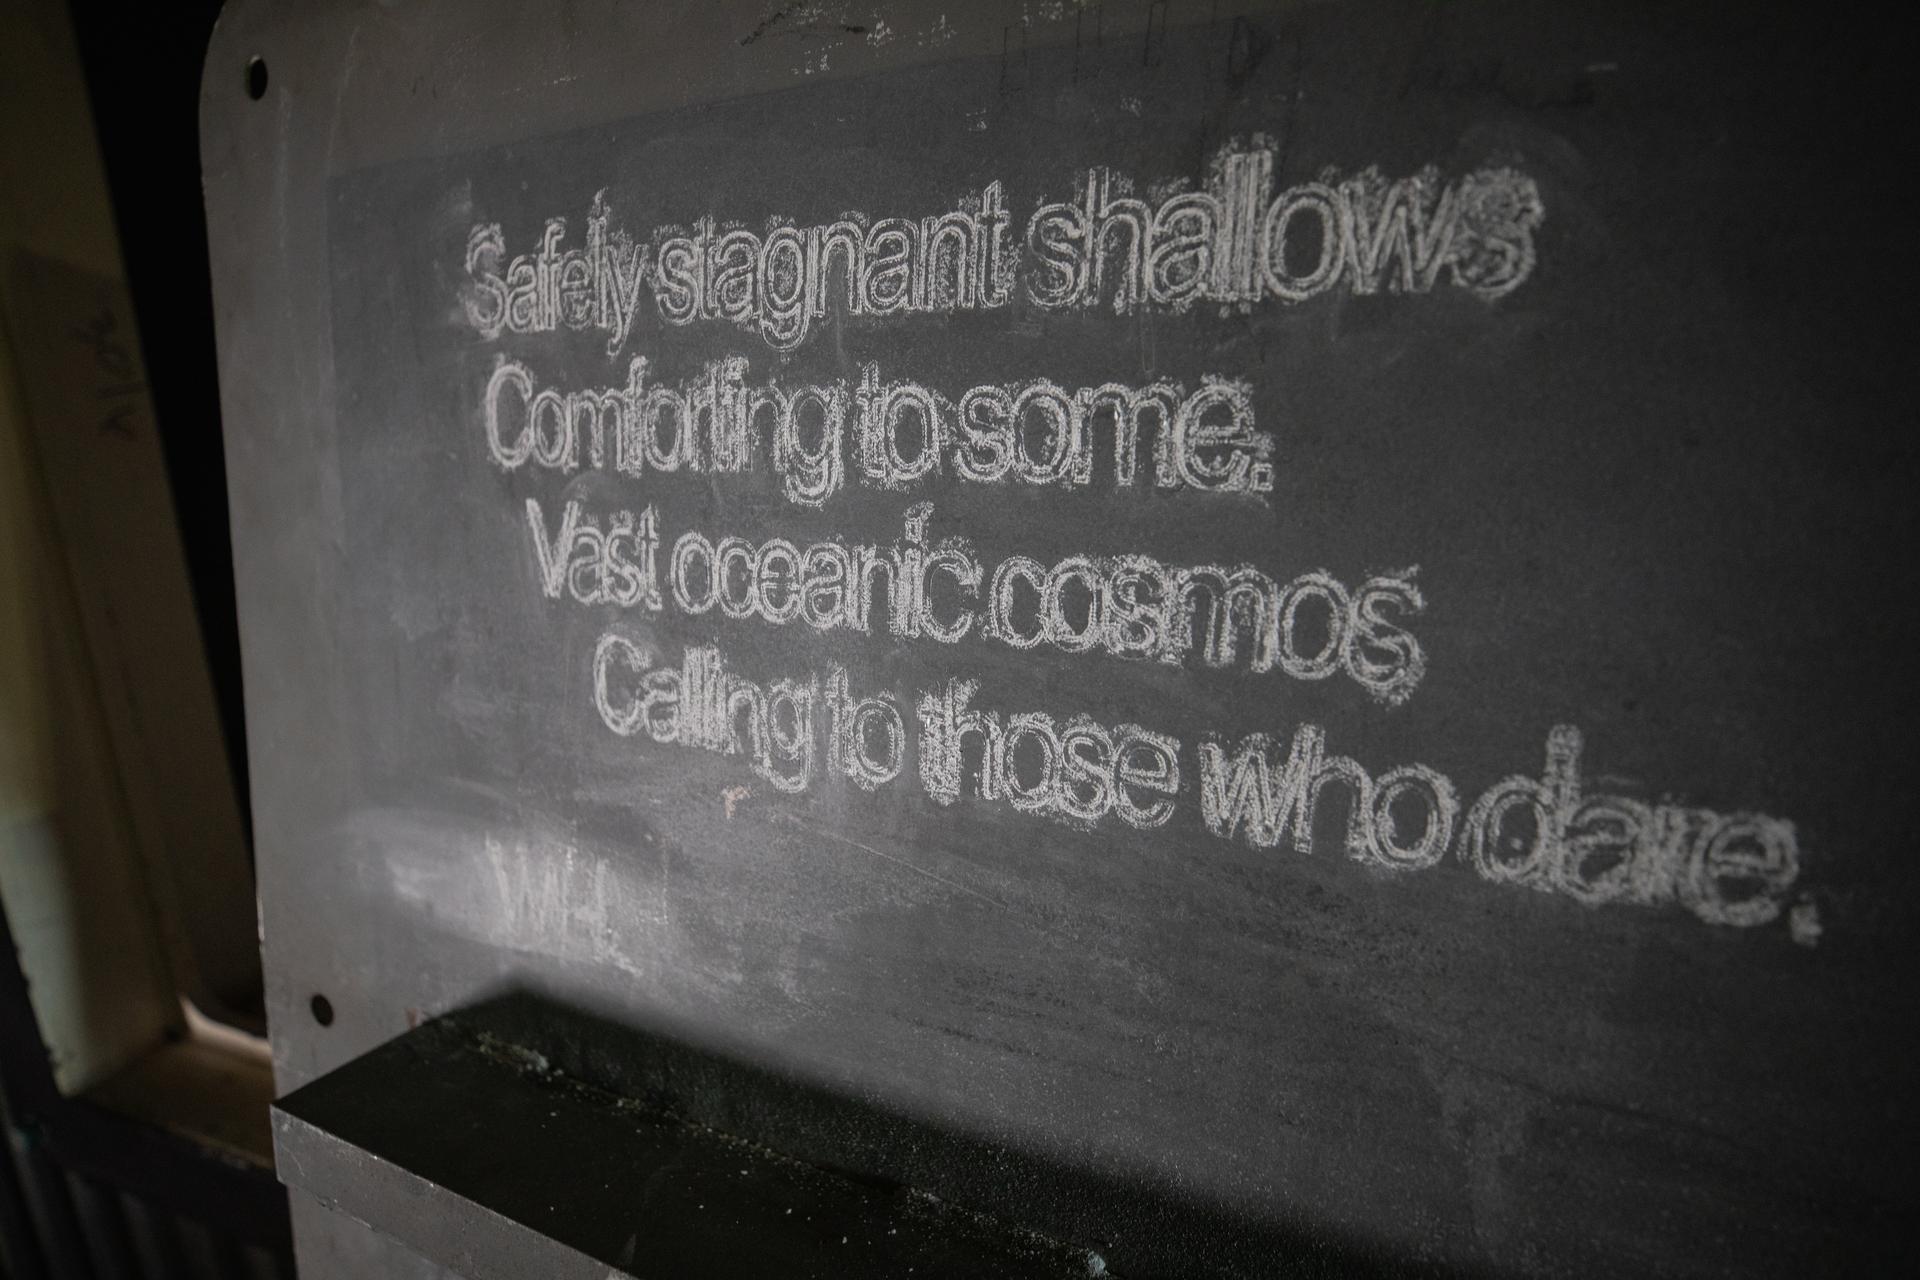 Safely stagnant shallows
Comforting to some.
Vast oceanic cosmos
Calling to those who dare.